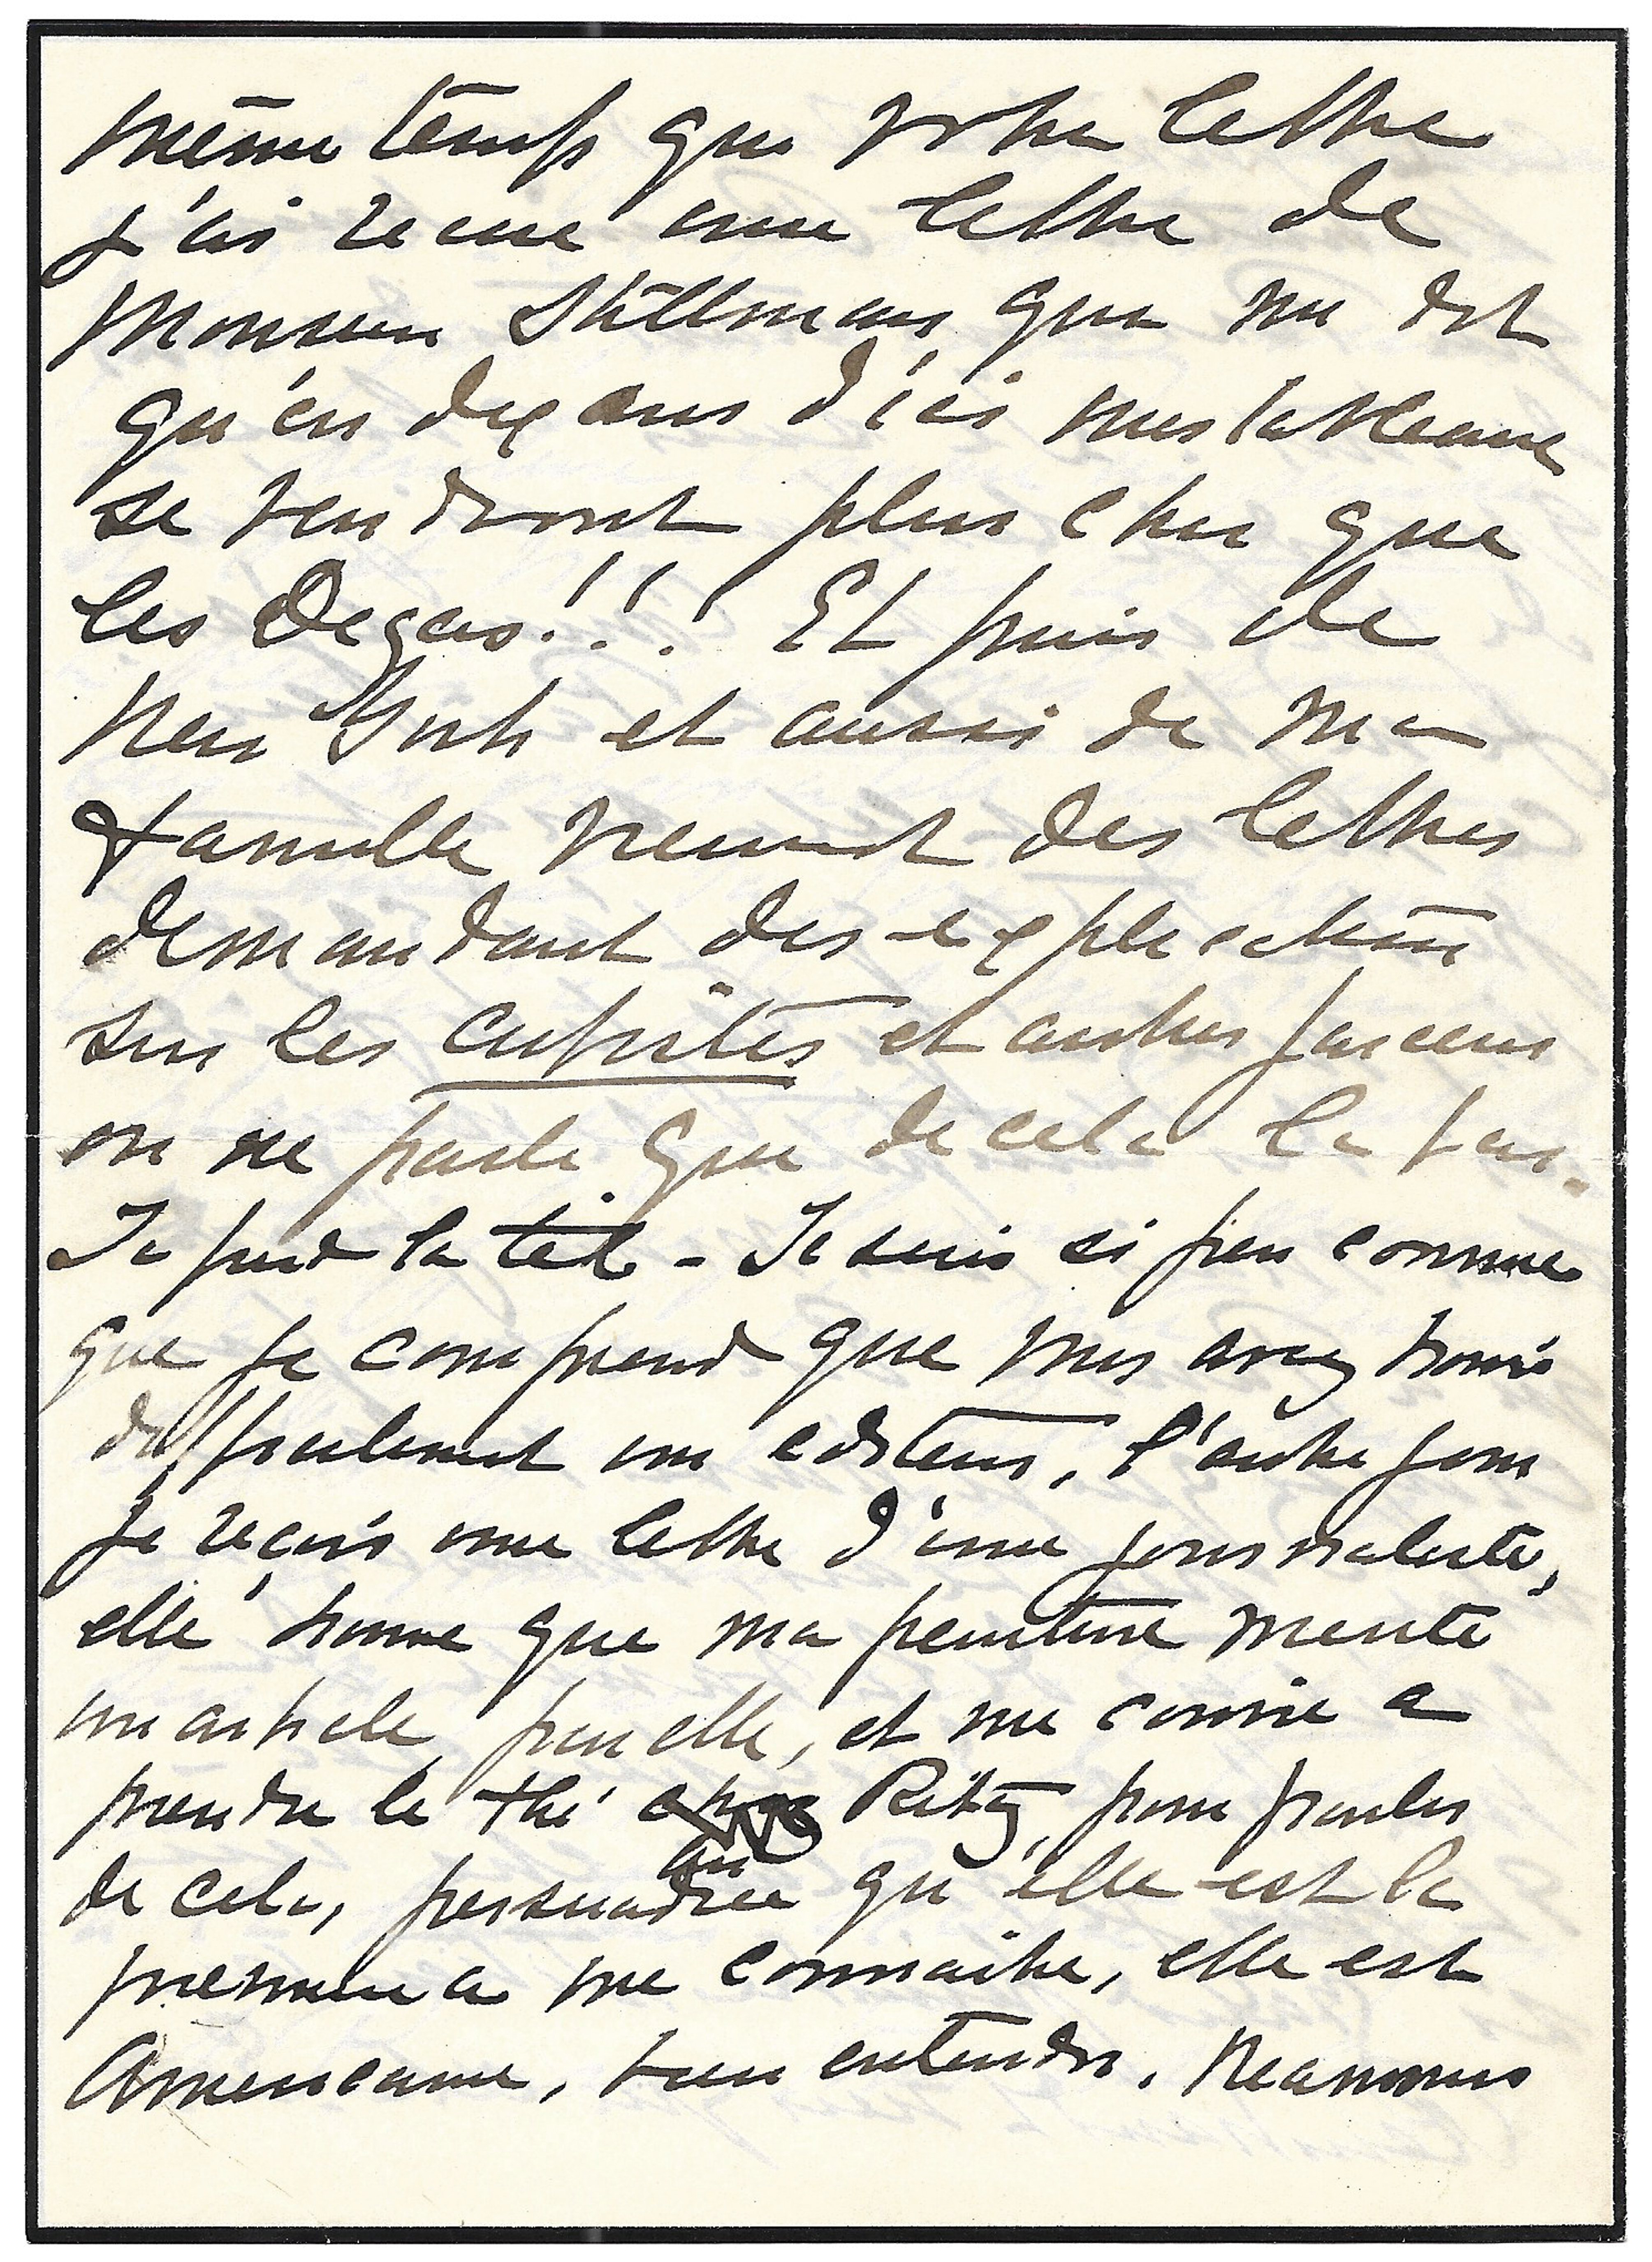 même temps que votre lettre
j'ai recue une lettre de
Monsieur Stillman que me dit
qu'en dix ans d'ici mes tableaux
se vendront plus cher que
les Degas!!! Et puis de
New York et aussi de ma
famille viennent des lettres
demandant des explications
sur les cubistes et autres farceurs
on ne parle que de cela la bas.
Je perd la tête - Je suis si peu connue
que je comprend que vous avez trouvé
difficilement un editeur, l'autre jour
je reçois une lettre d'une journaliste,
elle trouve que ma peinture merite
un article pour elle, et me convie a
prendre le thé au Ritz, pour parler
de cela, persuadée qu'elle est la
premiere a me connaitre, elle est
Americaine, bien entendu. Neanmoins